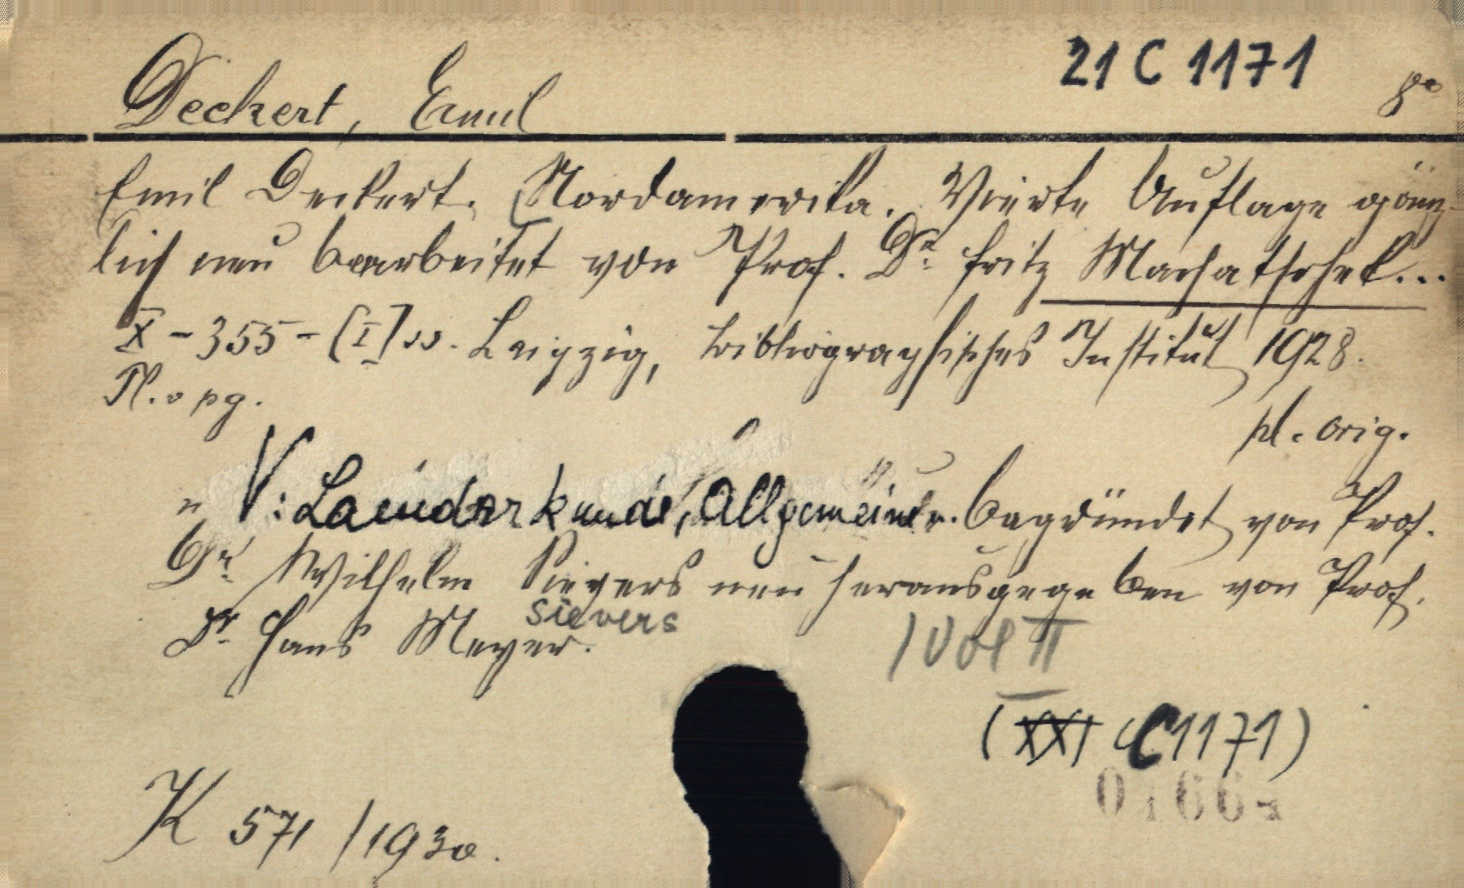 21 C 1171
8°
Deckert, Emil
Emil Deckert. Nordamerika. Vierte Auflage gänz-
lich neu bearbeitet von Prof. Dr. Fritz Machatschek...
X - 355 - [I] ss. Leipzig, bibliographisches Institut 1928.
Pl. o pg.
pl. orig.
V: Laenderkunde, Allgemeine. begründet von Prof.
Dr. Wilhelm Sievers neu herausgegeben von Prof.
Sievers
Dr. Hans Meyer.
1 Vol II
(XXI C 1171)
K 571 / 1930.